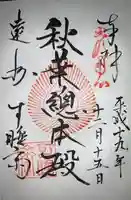 奉拝
平成二十九年
十二月十五日
秋葉總本殿
遠州
可睡斎